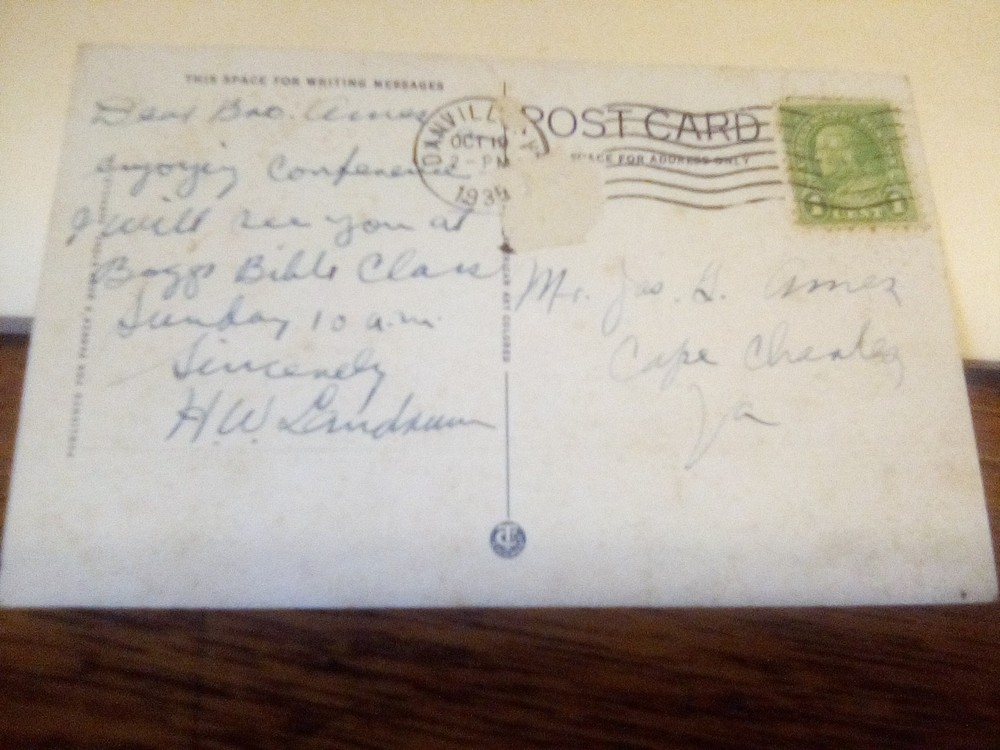 THIS SPACE FOR WRITING MESSAGES
Dear Bro. Ames
enjoying Conference
I will see you at
Baggs Bible Class
Sunday 10 a.m.
Sincerely
H.W.
DANVILL KY
OCT 19
2 - PM
193
POST CARD
SPACE FOR ADDRESS ONLY
1 CENT 1
Mr. Jas. G. Ames
Cape Charles
Va
PUBLISHED FOR
ART COLORED